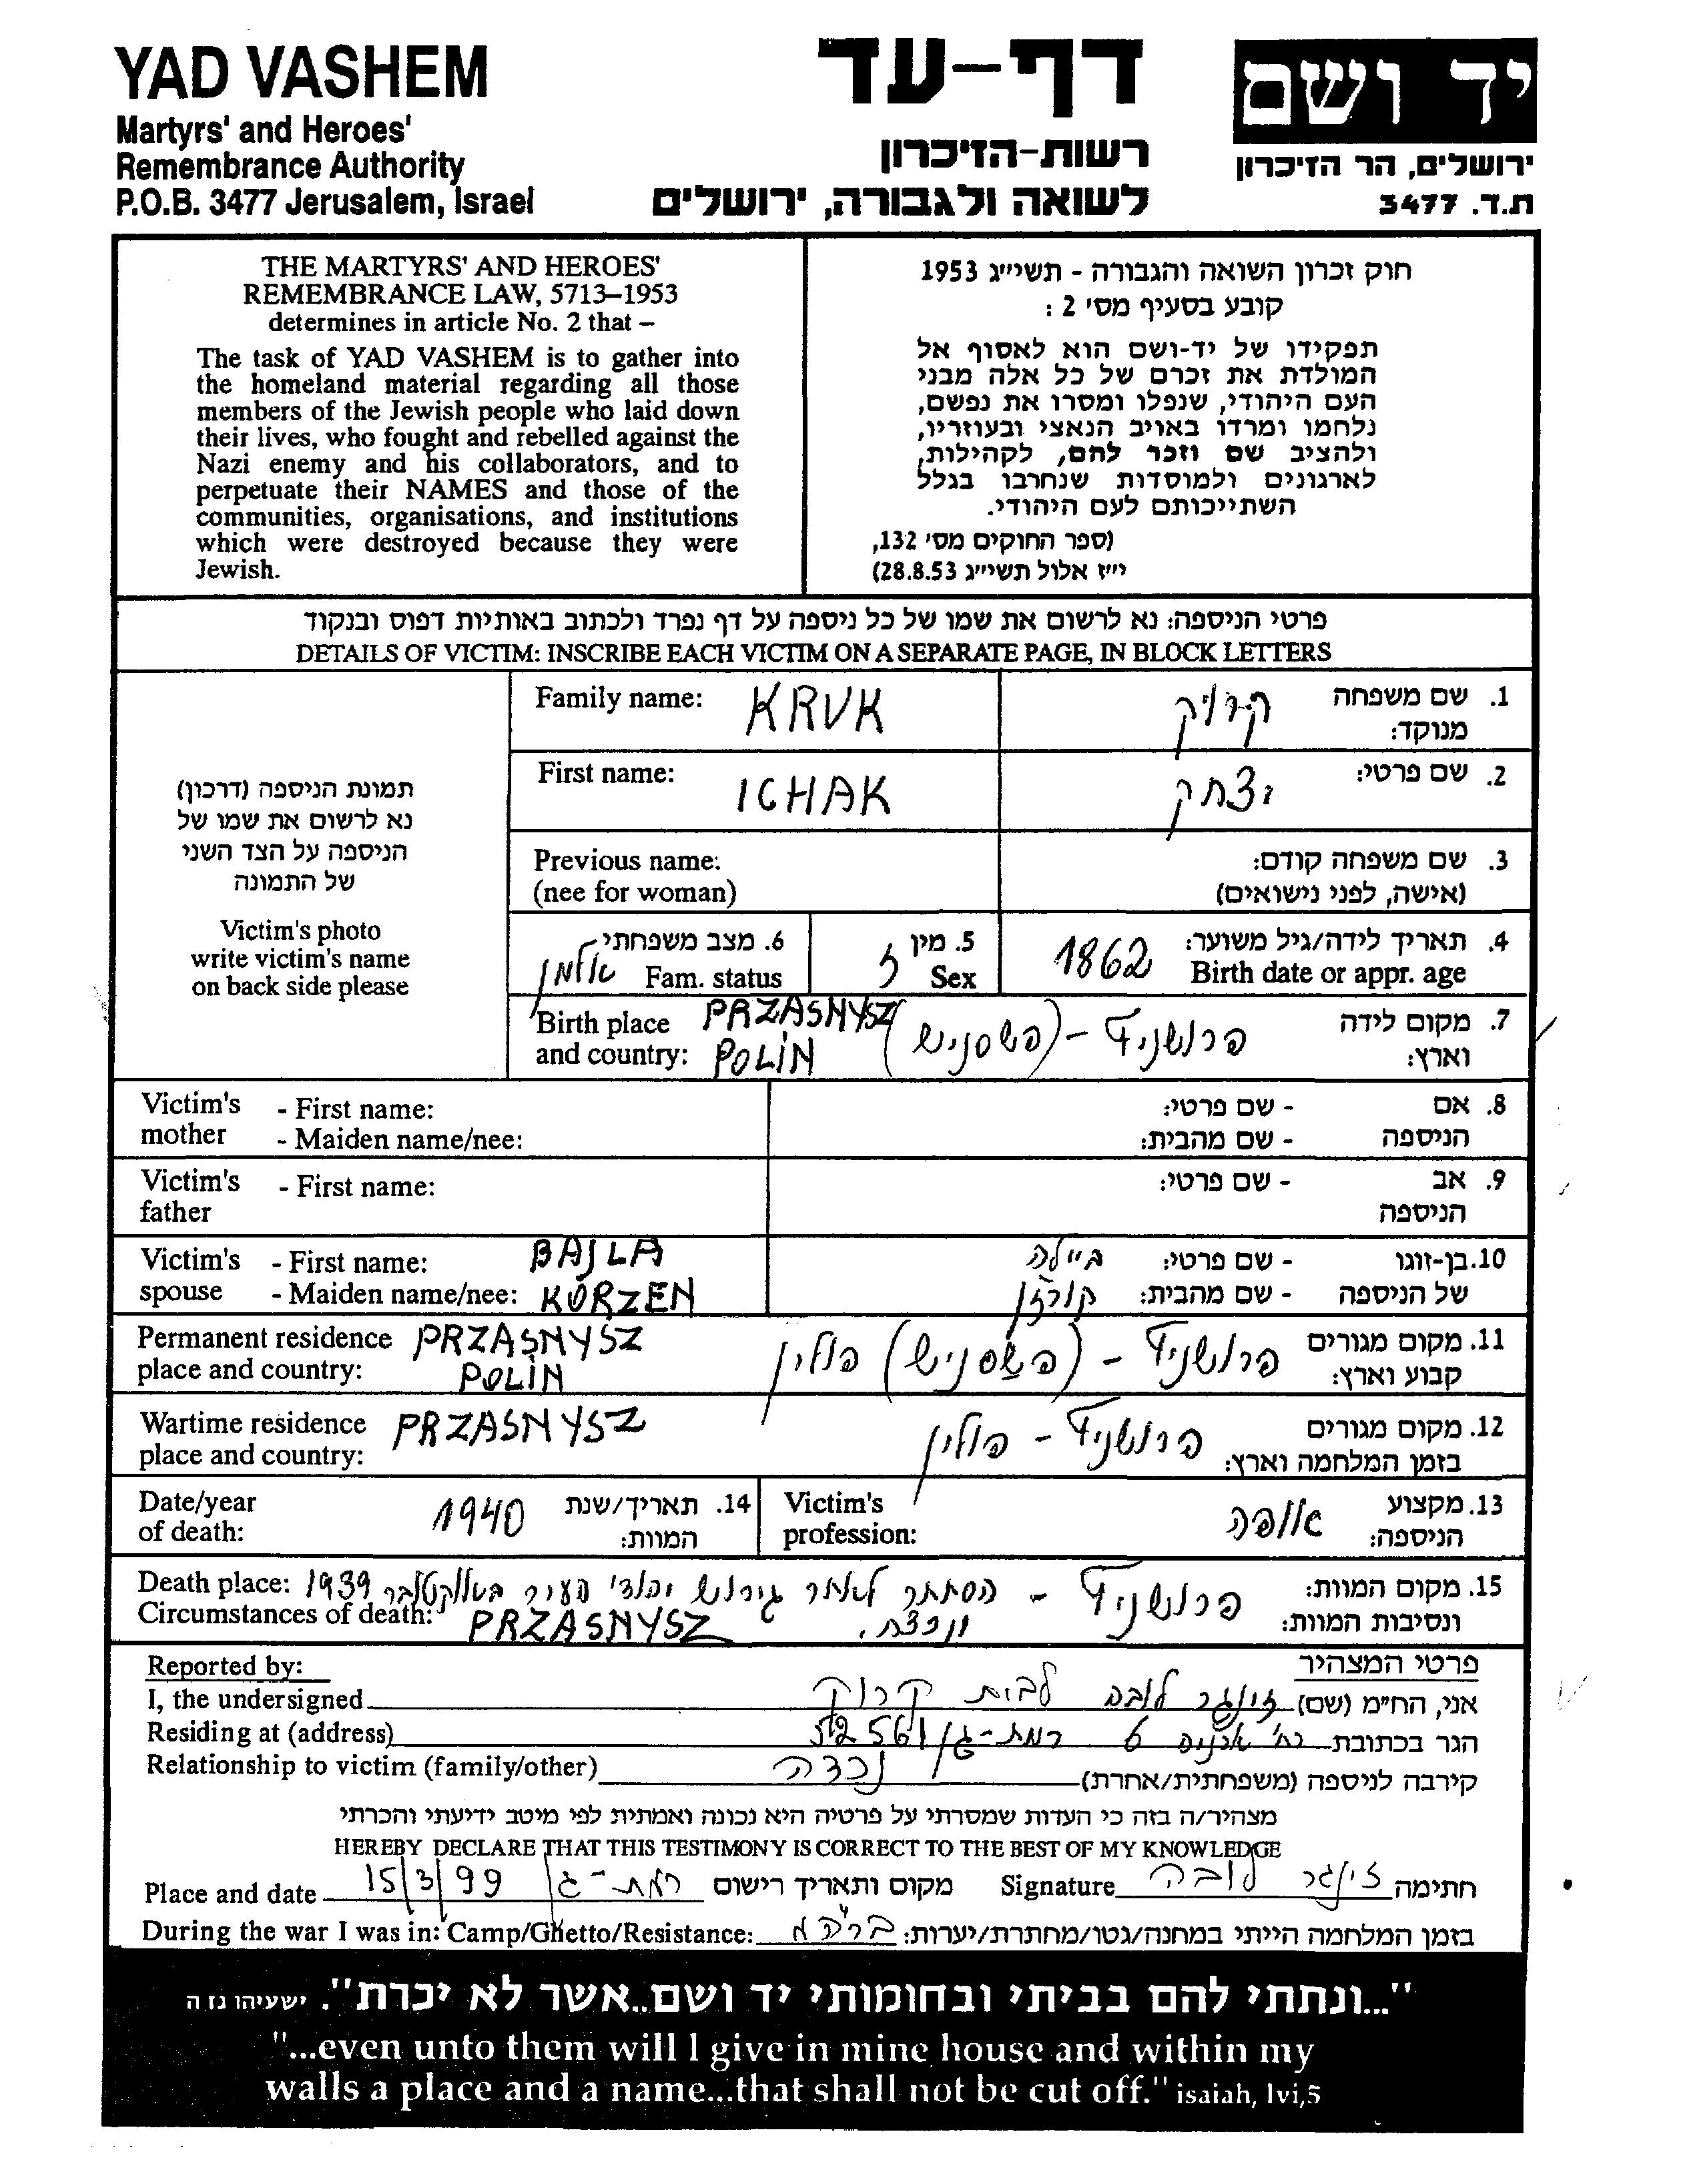 YAD VASHEM
Martyrs' and Heroes'
Remembrance Authority
P.O.B. 3477 Jerusalem, Israel
דף-עד
רשות-הזיכרון
לשואה ולגבורה, ירושלים
יד ושם
ירושלים, הר הזיכרון
ת.ד. 3477
THE MARTYRS' AND HEROES'
REMEMBRANCE LAW, 5713–1953
determines in article No. 2 that –
The task of YAD VASHEM is to gather into
the homeland material regarding all those
members of the Jewish people who laid down
their lives, who fought and rebelled against the
Nazi enemy and his collaborators, and to
perpetuate their NAMES and those of the
communities, organisations, and institutions
which were destroyed because they were
Jewish.
חוק זכרון השואה והגבורה - תשי״ג 1953
קובע בסעיף מס׳ 2 :
תפקידו של יד-ושם הוא לאסוף אל
המולדת את זכרם של כל אלה מבני
העם היהודי, שנפלו ומסרו את נפשם,
נלחמו ומרדו באויב הנאצי ובעוזריו,
ולהציב שם וזכר להם, לקהילות,
לארגונים ולמוסדות שנחרבו בגלל
השתייכותם לעם היהודי.
(ספר החוקים מס׳ 132,
י״ז אלול תשי״ג 28.8.53)
פרטי הניספה: נא לרשום את שמו של כל ניספה על דף נפרד ולכתוב באותיות דפוס ובנקוד
DETAILS OF VICTIM: INSCRIBE EACH VICTIM ON A SEPARATE PAGE, IN BLOCK LETTERS
תמונת הניספה (דרכון)
נא לרשום את שמו של
הניספה על הצד השני
של התמונה
Victim's photo
write victim's name
on back side please
Family name: KRUK
קרוק
1. שם משפחה
מנוקד:
First name: ICHAK
יצחק
2. שם פרטי:
Previous name:
(nee for woman)
3. שם משפחה קודם:
(אישה, לפני נישואים)
6. מצב משפחתי
Fam. status אלמן
5. מין
Sex ז
4. תאריך לידה/גיל משוער:
Birth date or appr. age 1862
Birth place PRZASNYSZ
and country: POLIN
7. מקום לידה
וארץ:
פרושניץ - (פשסניש)
Victim's - First name:
mother - Maiden name/nee:
8. אם - שם פרטי:
הניספה - שם מהבית:
Victim's - First name:
father
9. אב - שם פרטי:
הניספה
Victim's - First name: BAJLA
spouse - Maiden name/nee: KORZEN
10. בן-זוגו - שם פרטי: ביילה
של הניספה - שם מהבית: קורזן
Permanent residence PRZASNYSZ
place and country: POLIN
11. מקום מגורים
קבוע וארץ:
פרושניץ - (פשסניש) פולין
Wartime residence PRZASNYSZ
place and country:
12. מקום מגורים
בזמן המלחמה וארץ:
פרושניץ - פולין
Date/year
of death:
1940
14. תאריך/שנת
המוות:
Victim's
profession:
13. מקצוע
הניספה: אופה
Death place:
Circumstances of death: PRZASNYSZ
15. מקום המוות:
ונסיבות המוות:
פרושניץ - הסתתר לאחר גירוש יהודי העיר באוקטובר 1939
ונרצח.
Reported by:
פרטי המצהיר
I, the undersigned
אני, הח״מ (שם) זינגר לובה לבית קרוק
Residing at (address)
הגר בכתובת רח׳ 6 רמת-גן 52561
Relationship to victim (family/other)
קירבה לניספה (משפחתית/אחרת) נכדה
מצהיר/ה בזה כי העדות שמסרתי על פרטיה היא נכונה ואמתית לפי מיטב ידיעתי והכרתי
HEREBY DECLARE THAT THIS TESTIMONY IS CORRECT TO THE BEST OF MY KNOWLEDGE
Place and date 15/3/99 רמת-גן מקום ותאריך רישום
Signature זינגר לובה חתימה
During the war I was in: Camp/Ghetto/Resistance:
בזמן המלחמה הייתי במחנה/גטו/מחתרת/יערות:
"...ונתתי להם בביתי ובחומותי יד ושם..אשר לא יכרת". ישעיהו נז ה
"...even unto them will I give in mine house and within my
walls a place and a name...that shall not be cut off." isaiah, lvi,5